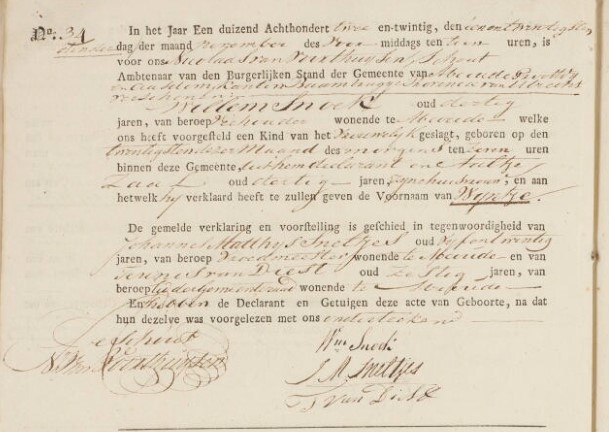 No. 34
In het Jaar Een duizend Achthondert twee en-twintig, den een en twentigsten
dag der maand November des Voor middags ten tien uren, is
voor ons Nicolaas van Voorthuysen, Schout
Ambtenaar van den Burgerlijken Stand der Gemeente van Abcoude
verschenen
Willem Snoek oud dertig
jaren, van beroep wonende te Abcoude welke
ons heeft voorgesteld een Kind van het Vrouwelyk geslagt, geboren op den
twentigsten dezer Maand des morgens ten zeven uren
binnen deze Gemeente, uit hem declarant en Aaltje
oud dertig jaren, zyne huisvrouw, en aan
hetwelk hy verklaard heeft te zullen geven de Voornaam van Wyntje.
De gemelde verklaring en voorstelling is geschied in tegenwoordigheid van
Johannes Matthys Sneltjes oud vyf en twentig
jaren, van beroep wonende te Abcoude en van
Teunis van Diest oud zestig jaren, van
beroep wonende te Abcoude
En hebben de Declarant en Getuigen deze acte van Geboorte, na dat
hun dezelve was voorgelezen met ons onderteekend
de schout
N. van Voorthuysen
Wm Snoek
J. M. Sneltjes
T van Diest